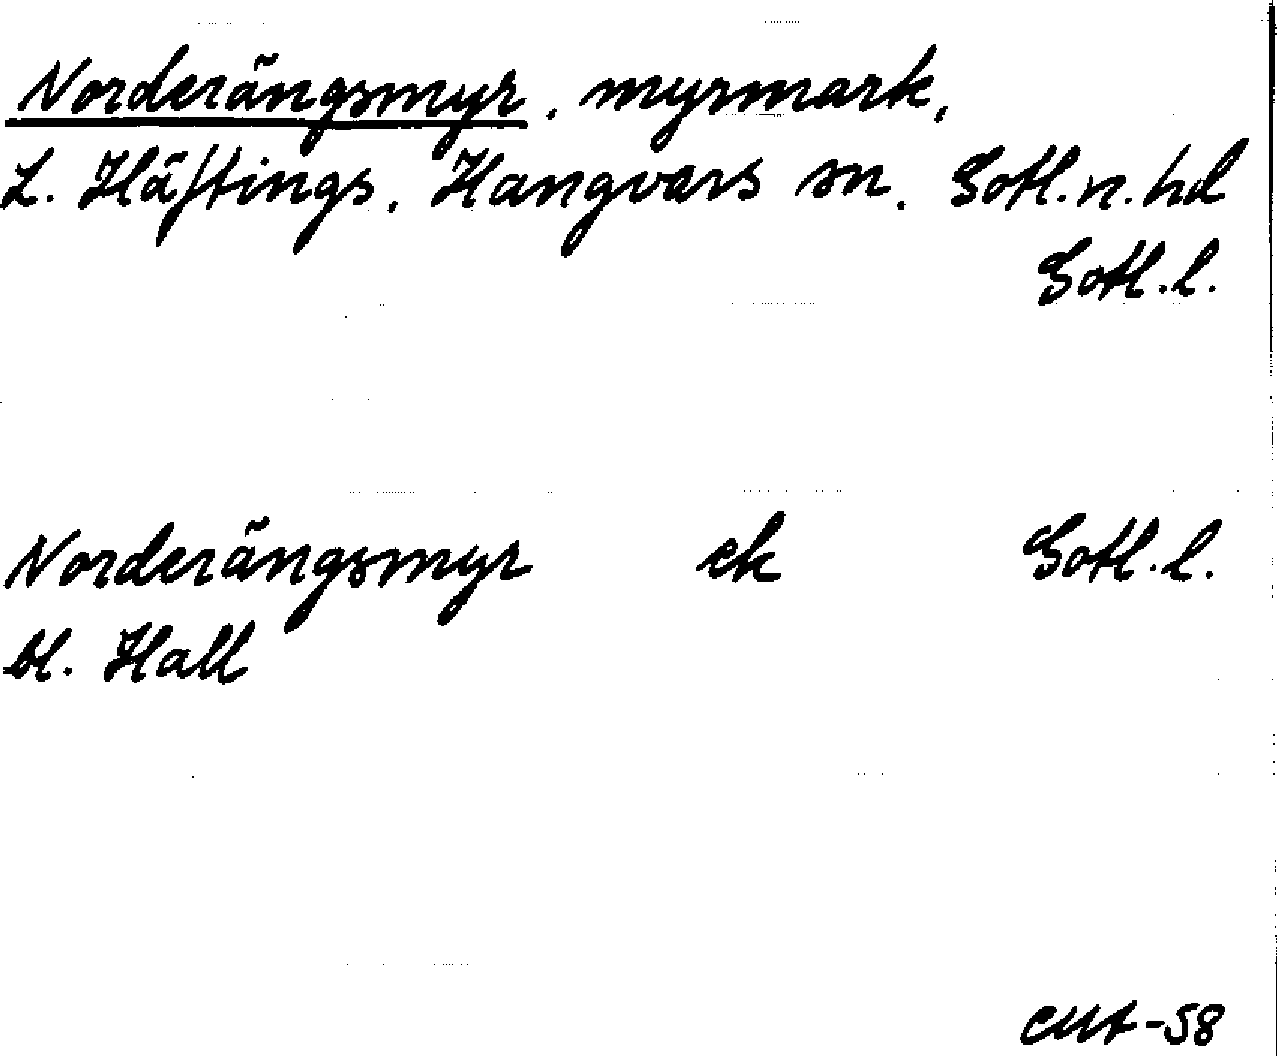 Norderängsmyr, myrmark,
L. Häftings, Hangvars sn. Gotl. n. hd
Gotl. l.
Norderängsmyr ek Gotl. l.
bl. Hall